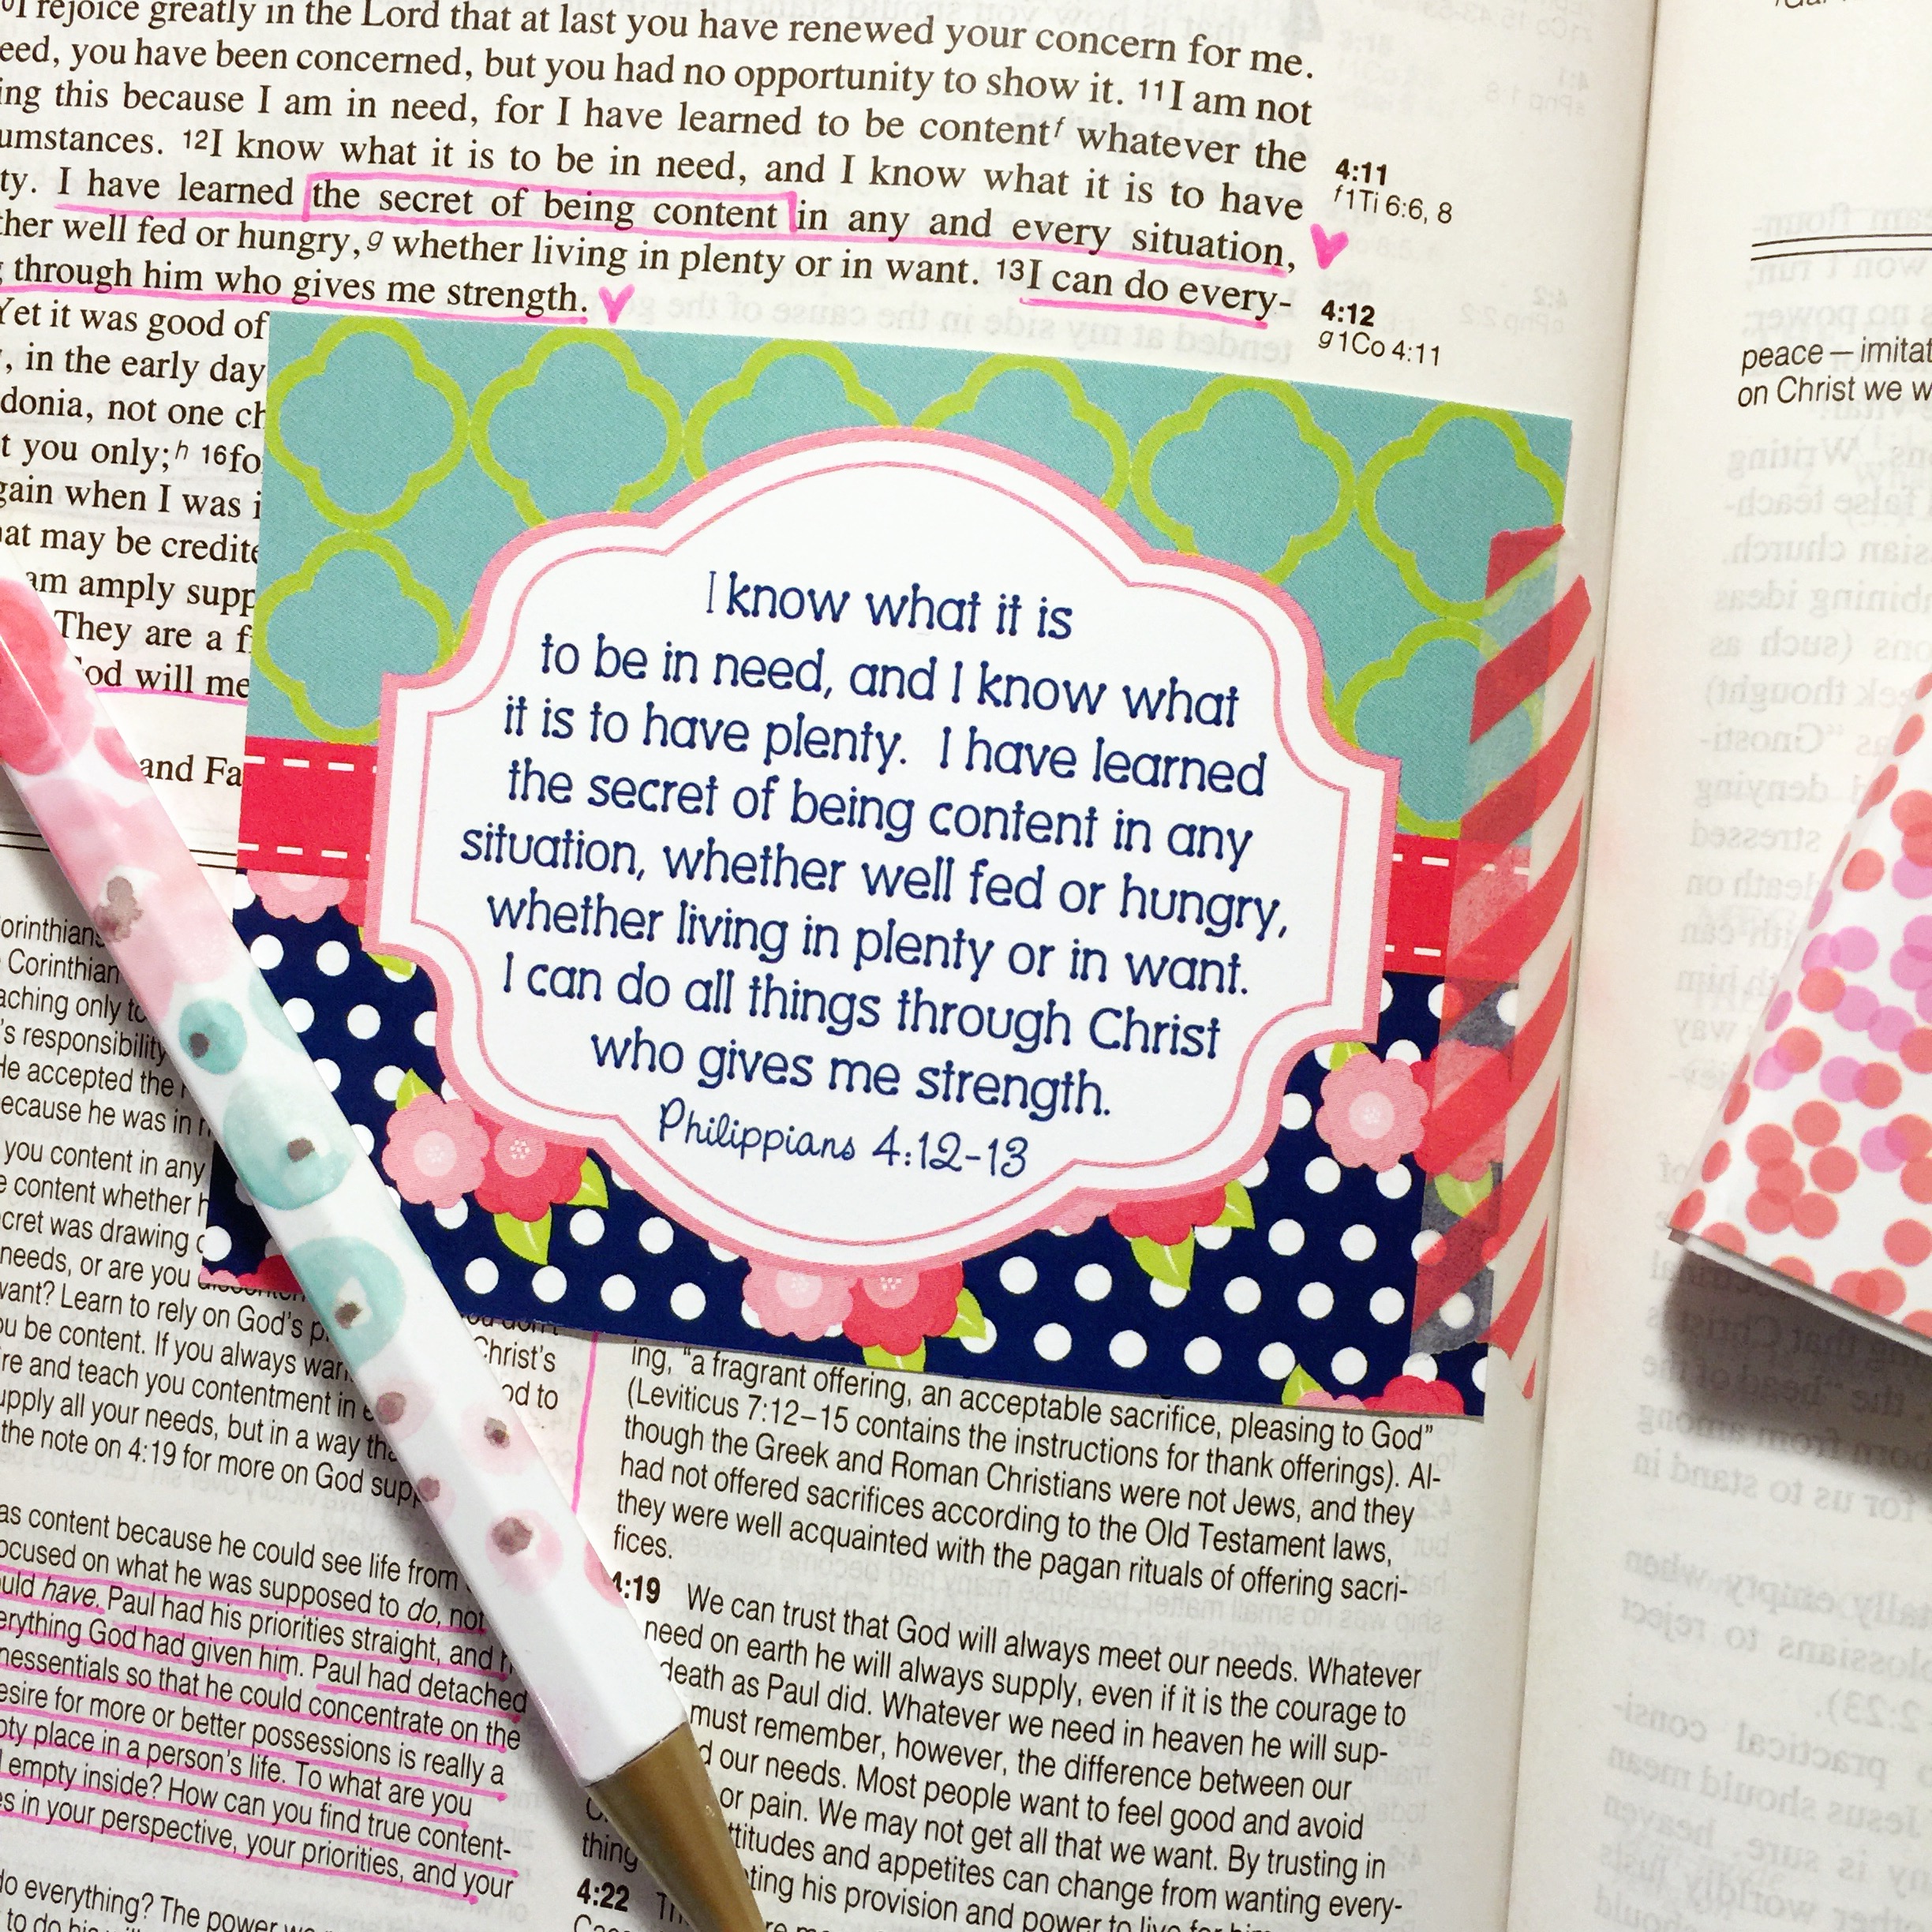 I rejoice greatly in the Lord that at last you have renewed your concern for me.
you have been concerned, but you had no opportunity to show it. 11I am not
this because I am in need, for I have learned to be contentf whatever the
12I know what it is to be in need, and I know what it is to have
I have learned the secret of being content in any and every situation,
well fed or hungry,g whether living in plenty or in want. 13I can do every-
through him who gives me strength.
4:11
f1Ti 6:6, 8
4:12
g1Co 4:11
Yet it was good of
, in the early day
not one
t you only;h 16fo
when I was i
at may be
am amply
They are a
will me
and
I know what it is
to be in need, and I know what
it is to have plenty. I have learned
the secret of being content in any
situation, whether well fed or hungry,
whether living in plenty or in want.
I can do all things through Christ
who gives me strength.
Philippians 4:12-13
peace—imitat
on Christ we w
Corinthian
only to
's responsibility
He accepted the
because he was in
you content in any
content whether
was drawing
needs, or are you
want? Learn to rely on God's
be content. If you always
and teach you contentment in
all your needs, but in a way
the note on 4:19 for more on God
you don't
Christ's
to
as content because he could see life from
on what he was supposed to do, not
have. Paul had his priorities straight, and
everything God had given him. Paul had detached
so that he could concentrate on the
desire for more or better possessions is really a
place in a person's life. To what are you
empty inside? How can you find true content-
in your perspective, your priorities, and your
do everything? The power
to do
ing, "a fragrant offering, an acceptable sacrifice, pleasing to God"
(Leviticus 7:12–15 contains the instructions for thank offerings). Al-
though the Greek and Roman Christians were not Jews, and they
had not offered sacrifices according to the Old Testament laws,
they were well acquainted with the pagan rituals of offering sacri-
fices.
4:19 We can trust that God will always meet our needs. Whatever
need on earth he will always supply, even if it is the courage to
death as Paul did. Whatever we need in heaven he will sup-
must remember, however, the difference between our
our needs. Most people want to feel good and avoid
or pain. We may not get all that we want. By trusting in
attitudes and appetites can change from wanting every-
thing his provision and power to live for him
4:22